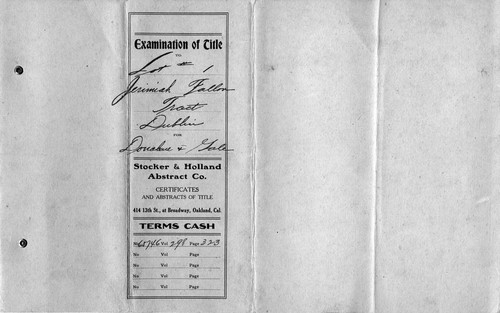 Examination of Title
TO
Lot # 1
Jerimiah Fallon
Tract
Dublin
FOR
Donahue & Gale
Stocker & Holland
Abstract Co.
CERTIFICATES
AND ABSTRACTS OF TITLE
414 13th St., at Broadway, Oakland, Cal.
TERMS CASH
No 60746 Vol 298 Page 323
No Vol Page
No Vol Page
No Vol Page